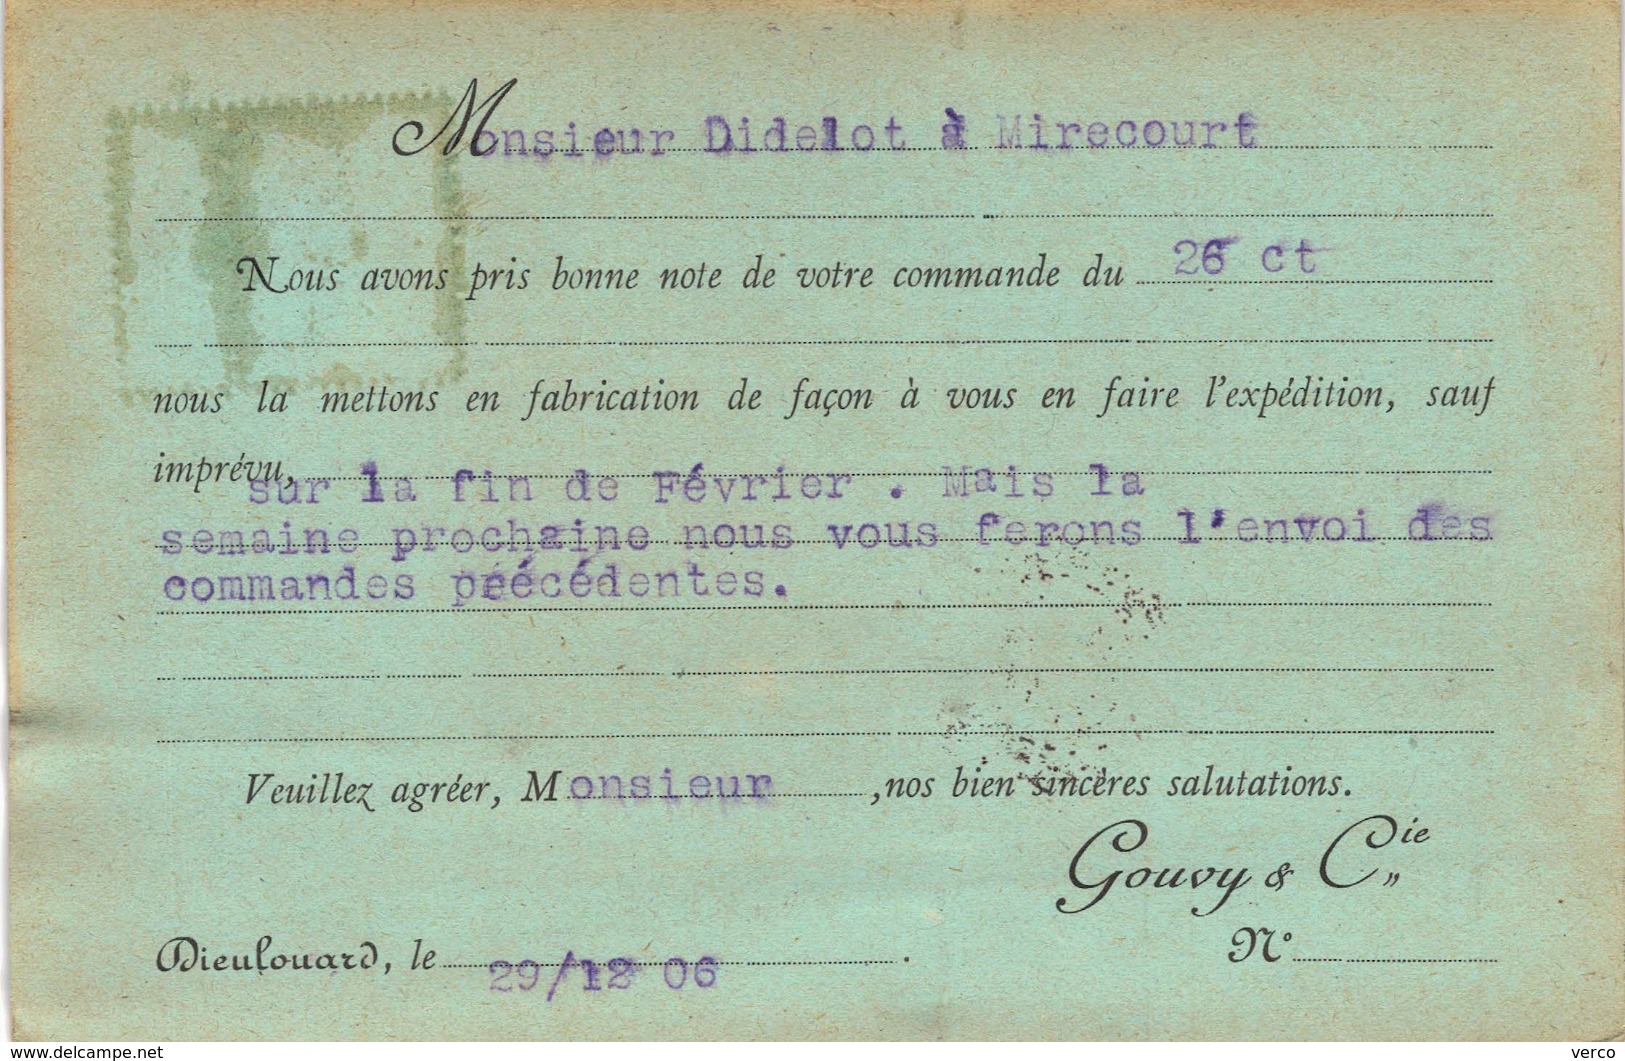 Monsieur Didelot à Mirecourt
Nous avons pris bonne note de votre commande du 26 ct
nous la mettons en fabrication de façon à vous en faire l'expédition, sauf
imprévu, sur la fin de Février . Mais la
semaine prochaine nous vous ferons l'envoi des
commandes précédentes.
Veuillez agréer, Monsieur ,nos bien sincères salutations.
Gouvy & Cie
Dieulouard, le 29/12 06 . No
www.delcampe.net
verco